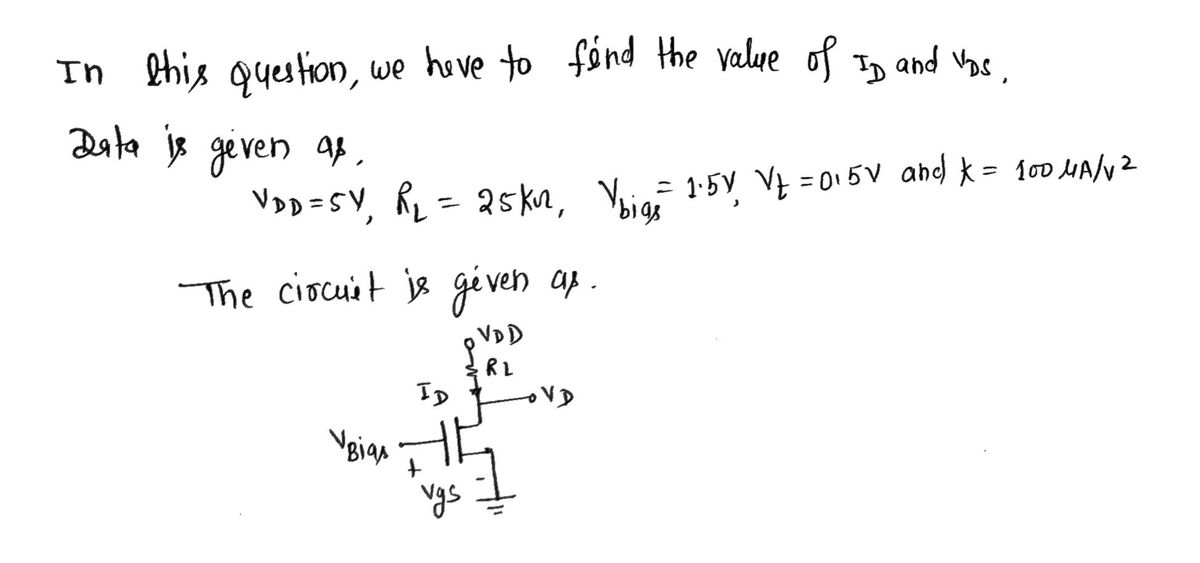 In this question, we have to find the value of ID and VDS.
Data is given as.
VDD = 5V, RL = 25kΩ, Vbias = 1.5V, Vt = 0.5V and k = 100 μA/V2
The circuit is given as.
VDD
RL
ID
VD
VBias
+
-
Vgs